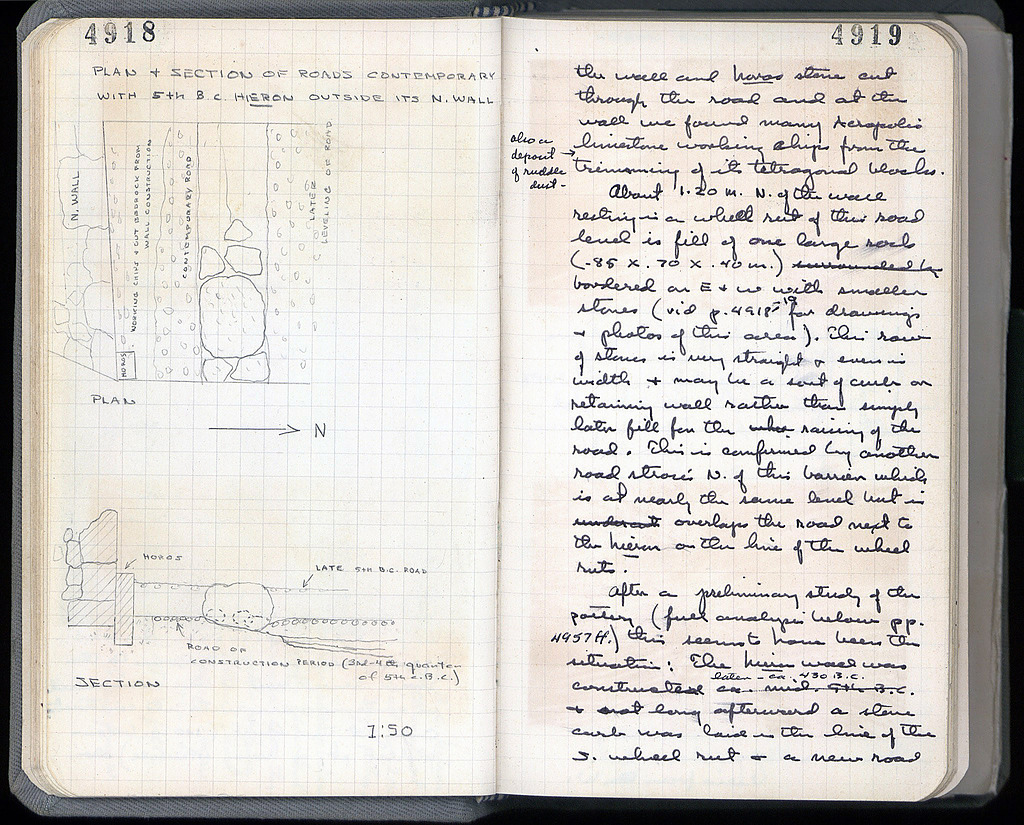 4918
PLAN & SECTION OF ROADS CONTEMPORARY
WITH 5th B.C. HIERON OUTSIDE ITS N. WALL
N. WALL
WORKING CHIPS & CUT BEDROCK FROM
WALL CONSTRUCTION
CONTEMPORARY ROAD
LATER
LEVELING OF ROAD
HOROS
PLAN
N
HOROS
LATE 5th B.C. ROAD
ROAD OF
CONSTRUCTION PERIOD (3rd-4th quarter
of 5th c. B.C.)
SECTION
1:50
4919
the wall and horos stone cut
through the road and at the
wall we found many Acropolis
limestone working chips from the
trimming of its tetragonal blocks.
also a
deposit
of
dust-
About 1.20 m. N. of the wall
resting in a wheel rut of this road
level is fill of one large rock
(.85 x .70 x .40 m.) surrounded by
bordered on E & W with smaller
stones (vid p. 4918-19 for drawings
& photos of this area). This row
of stones is very straight & even in
width & may be a sort of curb or
retaining wall rather than simply
later fill for the raising of the
road. This is confirmed by another
road strosis N. of this barrier which
is at nearly the same level but is
undercut overlaps the road next to
the hieron on the line of the wheel
ruts.
After a preliminary study of the
pottery (full analysis below pp.
4957ff.) this seems to have been the
situation: The hieron wall was
later - ca. 430 B.C.
constructed ca. mid. 5th B.C.
& not long afterward a stone
curb was laid in the line of the
S. wheel rut & a new road